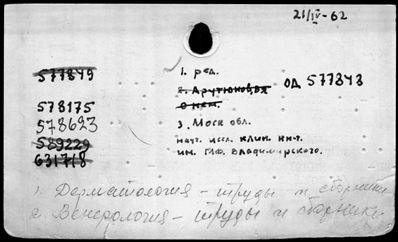 21/IV-62
577849
1. ред.
2. Арутюнова
ОД 577848
о нем.
578175
578623
3. Моск обл.
589229
научн. иссл. клин. ин-т.
631718
им. М.Ф. Владимирского.
1. Дерматология - труды и сборники
2. Венерология - труды и сборники